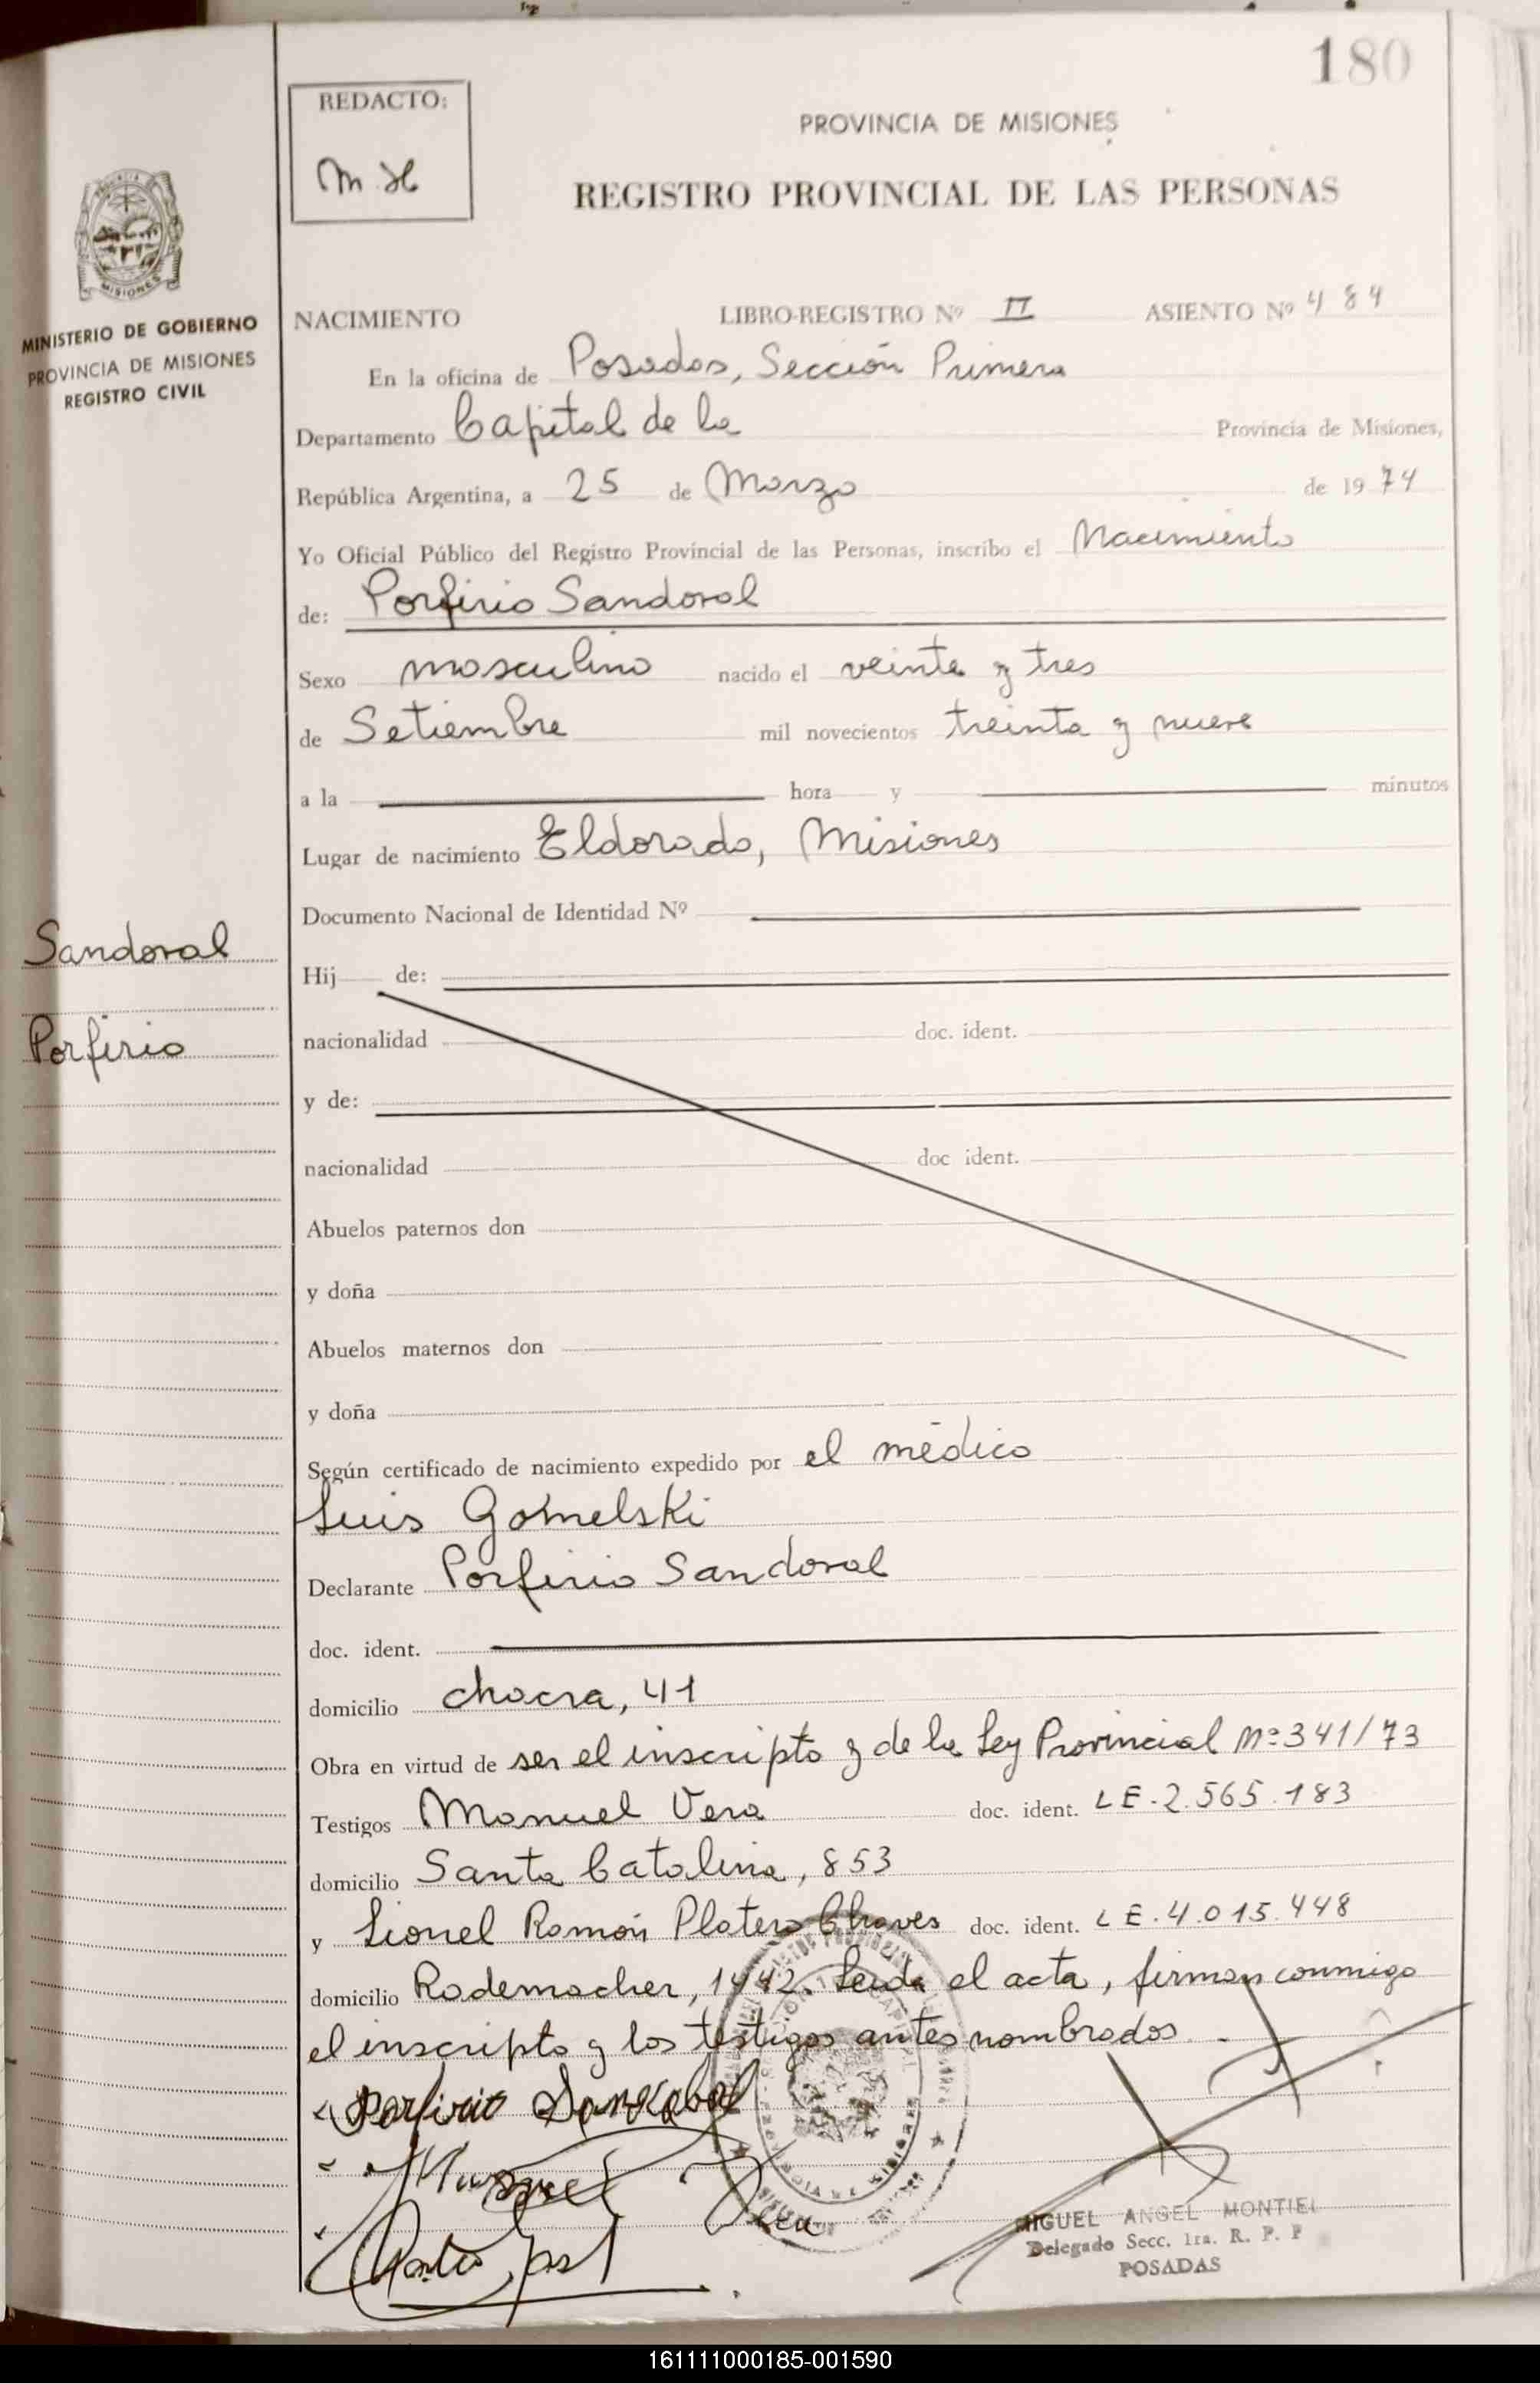 180
REDACTO:
M.H
PROVINCIA DE MISIONES
REGISTRO PROVINCIAL DE LAS PERSONAS
MISIONES
MINISTERIO DE GOBIERNO
PROVINCIA DE MISIONES
REGISTRO CIVIL
NACIMIENTO LIBRO-REGISTRO Nº II ASIENTO Nº 484
En la oficina de Posadas, Sección Primera
Departamento Capital de la Provincia de Misiones,
República Argentina, a 25 de Marzo de 1974
Yo Oficial Público del Registro Provincial de las Personas, inscribo el Nacimiento
de: Porfirio Sandoval
Sexo masculino nacido el veinte y tres
de Setiembre mil novecientos treinta y nueve
a la hora y minutos
Lugar de nacimiento Eldorado, Misiones
Documento Nacional de Identidad Nº
Sandoval
Porfirio
Hij de:
nacionalidad doc. ident.
y de:
nacionalidad doc ident.
Abuelos paternos don
y doña
Abuelos maternos don
y doña
Según certificado de nacimiento expedido por el médico
Luis Gomelski
Declarante Porfirio Sandoval
doc. ident.
domicilio chacra, 41
Obra en virtud de ser el inscripto y de la Ley Provincial Nº 341/73
Testigos Manuel Vera doc. ident. LE.2.565.183
domicilio Santa Catalina, 853
y Lionel Ramón Platero Chaves doc. ident. LE.4.015.448
domicilio Rademacher, 1442. Leida el acta, firman conmigo
el inscripto y los testigos antes nombrados.-
Porfirio Sandobal
Manuel Vera
MIGUEL ANGEL MONTIEL
Delegado Secc. 1ra. R. P. P
POSADAS
161111000185-001590